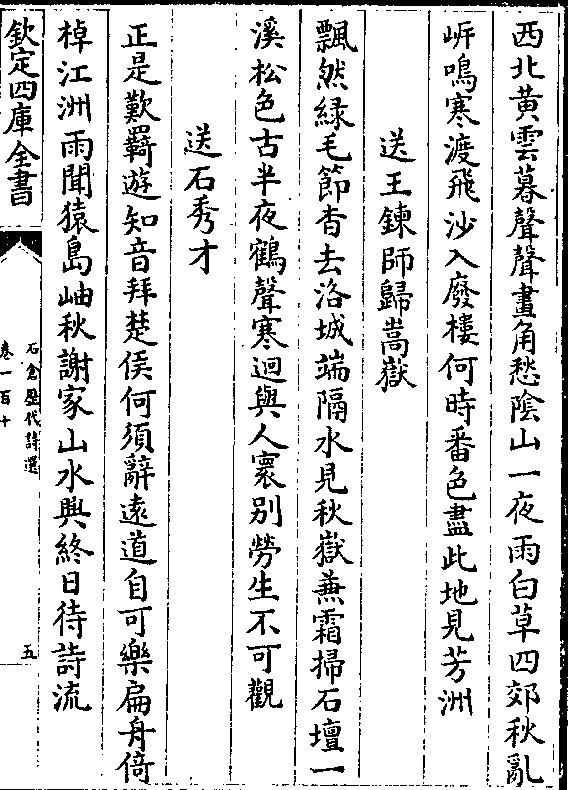 西北黄雲暮聲聲畫角愁陰山一夜雨白草四郊秋亂
㟁鳴寒渡飛沙入廢樓何時番色盡此地見芳洲
送王鍊師歸嵩嶽
飄然綠毛節杳去洛城端隔水見秋嶽兼霜掃石壇一
溪松色古半夜鶴聲寒迥與人寰别勞生不可觀
送石秀才
正是歎羇遊知音拜楚侯何須辭逺道自可樂扁舟倚
棹江洲雨聞猿島岫秋謝家山水興終日待詩流
欽定四庫全書
石倉歴代詩選
卷一百十
五